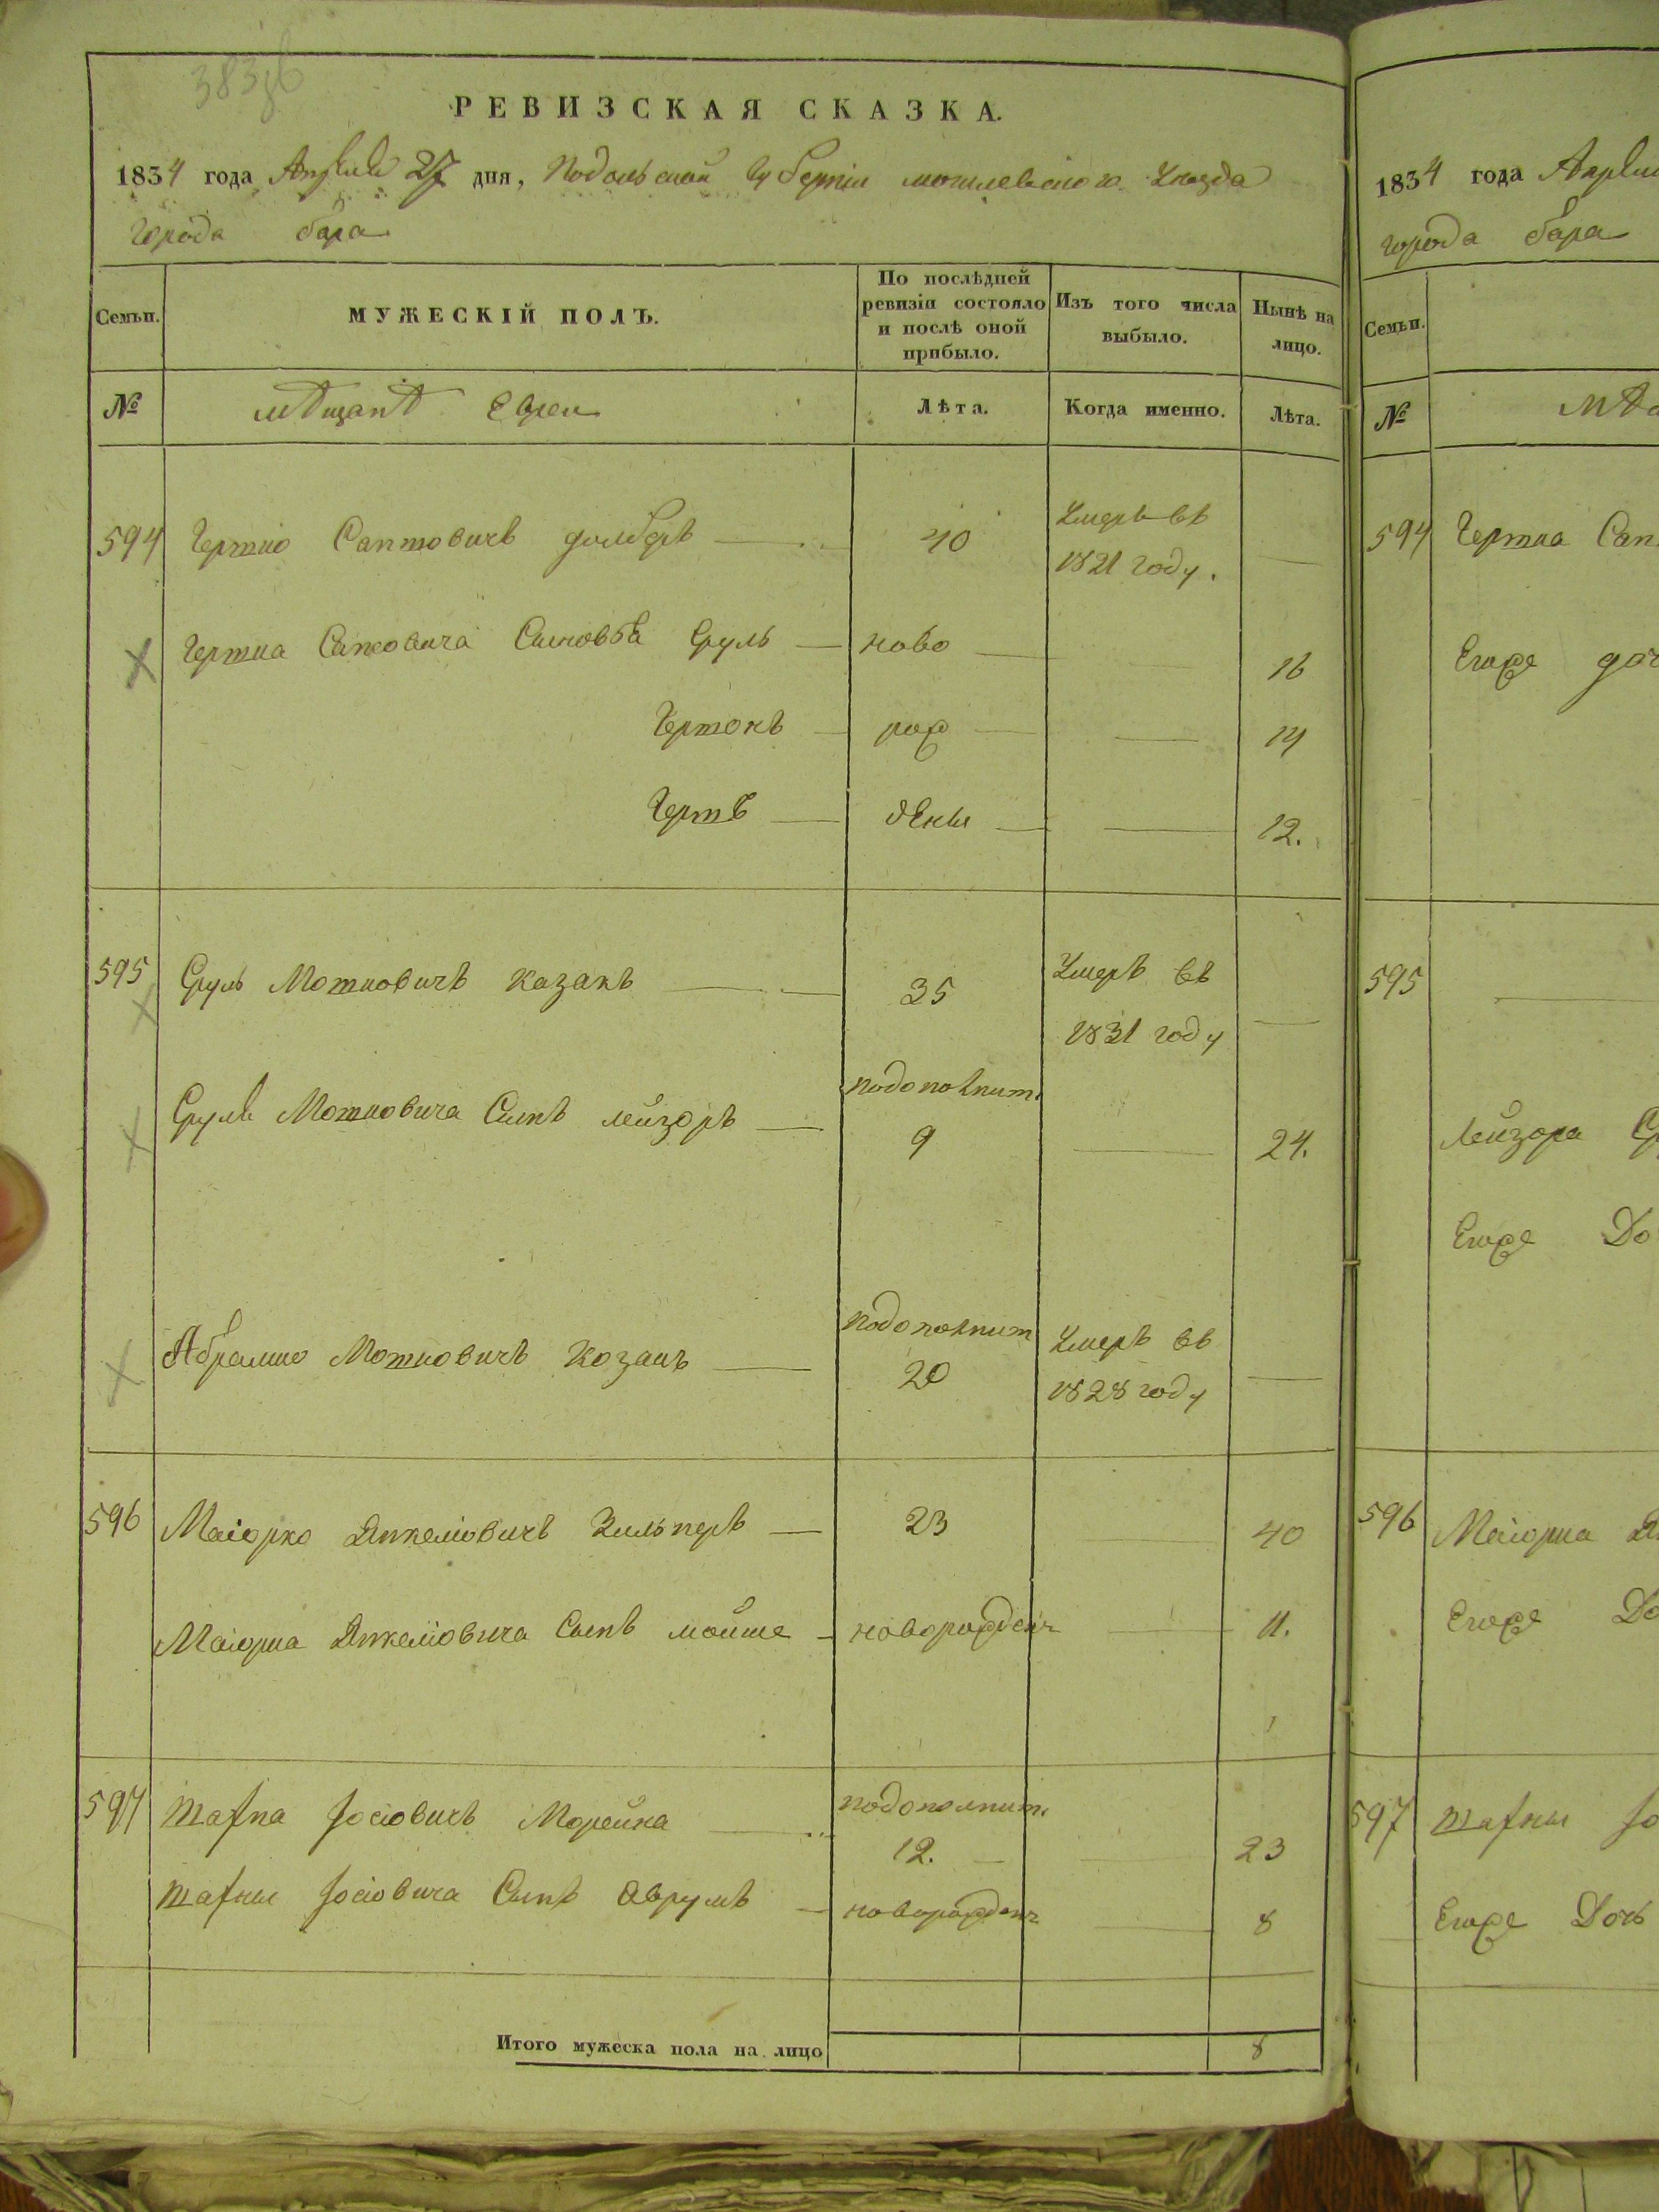 РЕВИЗСКАЯ СКАЗКА.
1834 года Апреля 27 дня, Подольской губернии могилевского Уезда
города бара
Семьи.
МУЖЕСКІЙ ПОЛЪ.
По послѣдней ревизіи состояло и послѣ оной прибыло.
Изъ того числа выбыло.
Нынѣ на лицо.
№
мѣщанѣ Евреи
Лѣта.
Когда именно.
Лѣта.
594 долберъ 40 Умеръ въ
1821 году.
Сруль ново 16
рож 14
дены 12.
595 Сруль Мошковичъ казакъ 35 Умеръ въ
1831 году
Сруля Мошковича Сынъ лейзоръ подополнит. 9 24.
Абрамко Мошковичъ Козакъ подополнит 20 Умеръ въ
1828 году
596 Маіорко Янкеліовичъ Зильперъ 23 40
Маіорка Янкеліовича Сынъ мойше новорожден 11.
597 Іосіовичъ Морейна подополнит. 12. 23
Іосіовича Сынъ Аврумъ новорожден 8
Итого мужеска пола на лицо 8
1834 года
города бара
Семьи.
№
594
Егоже
595
Лейзора
Егоже
596 Маіорка
Егоже
597
Егоже Дочь